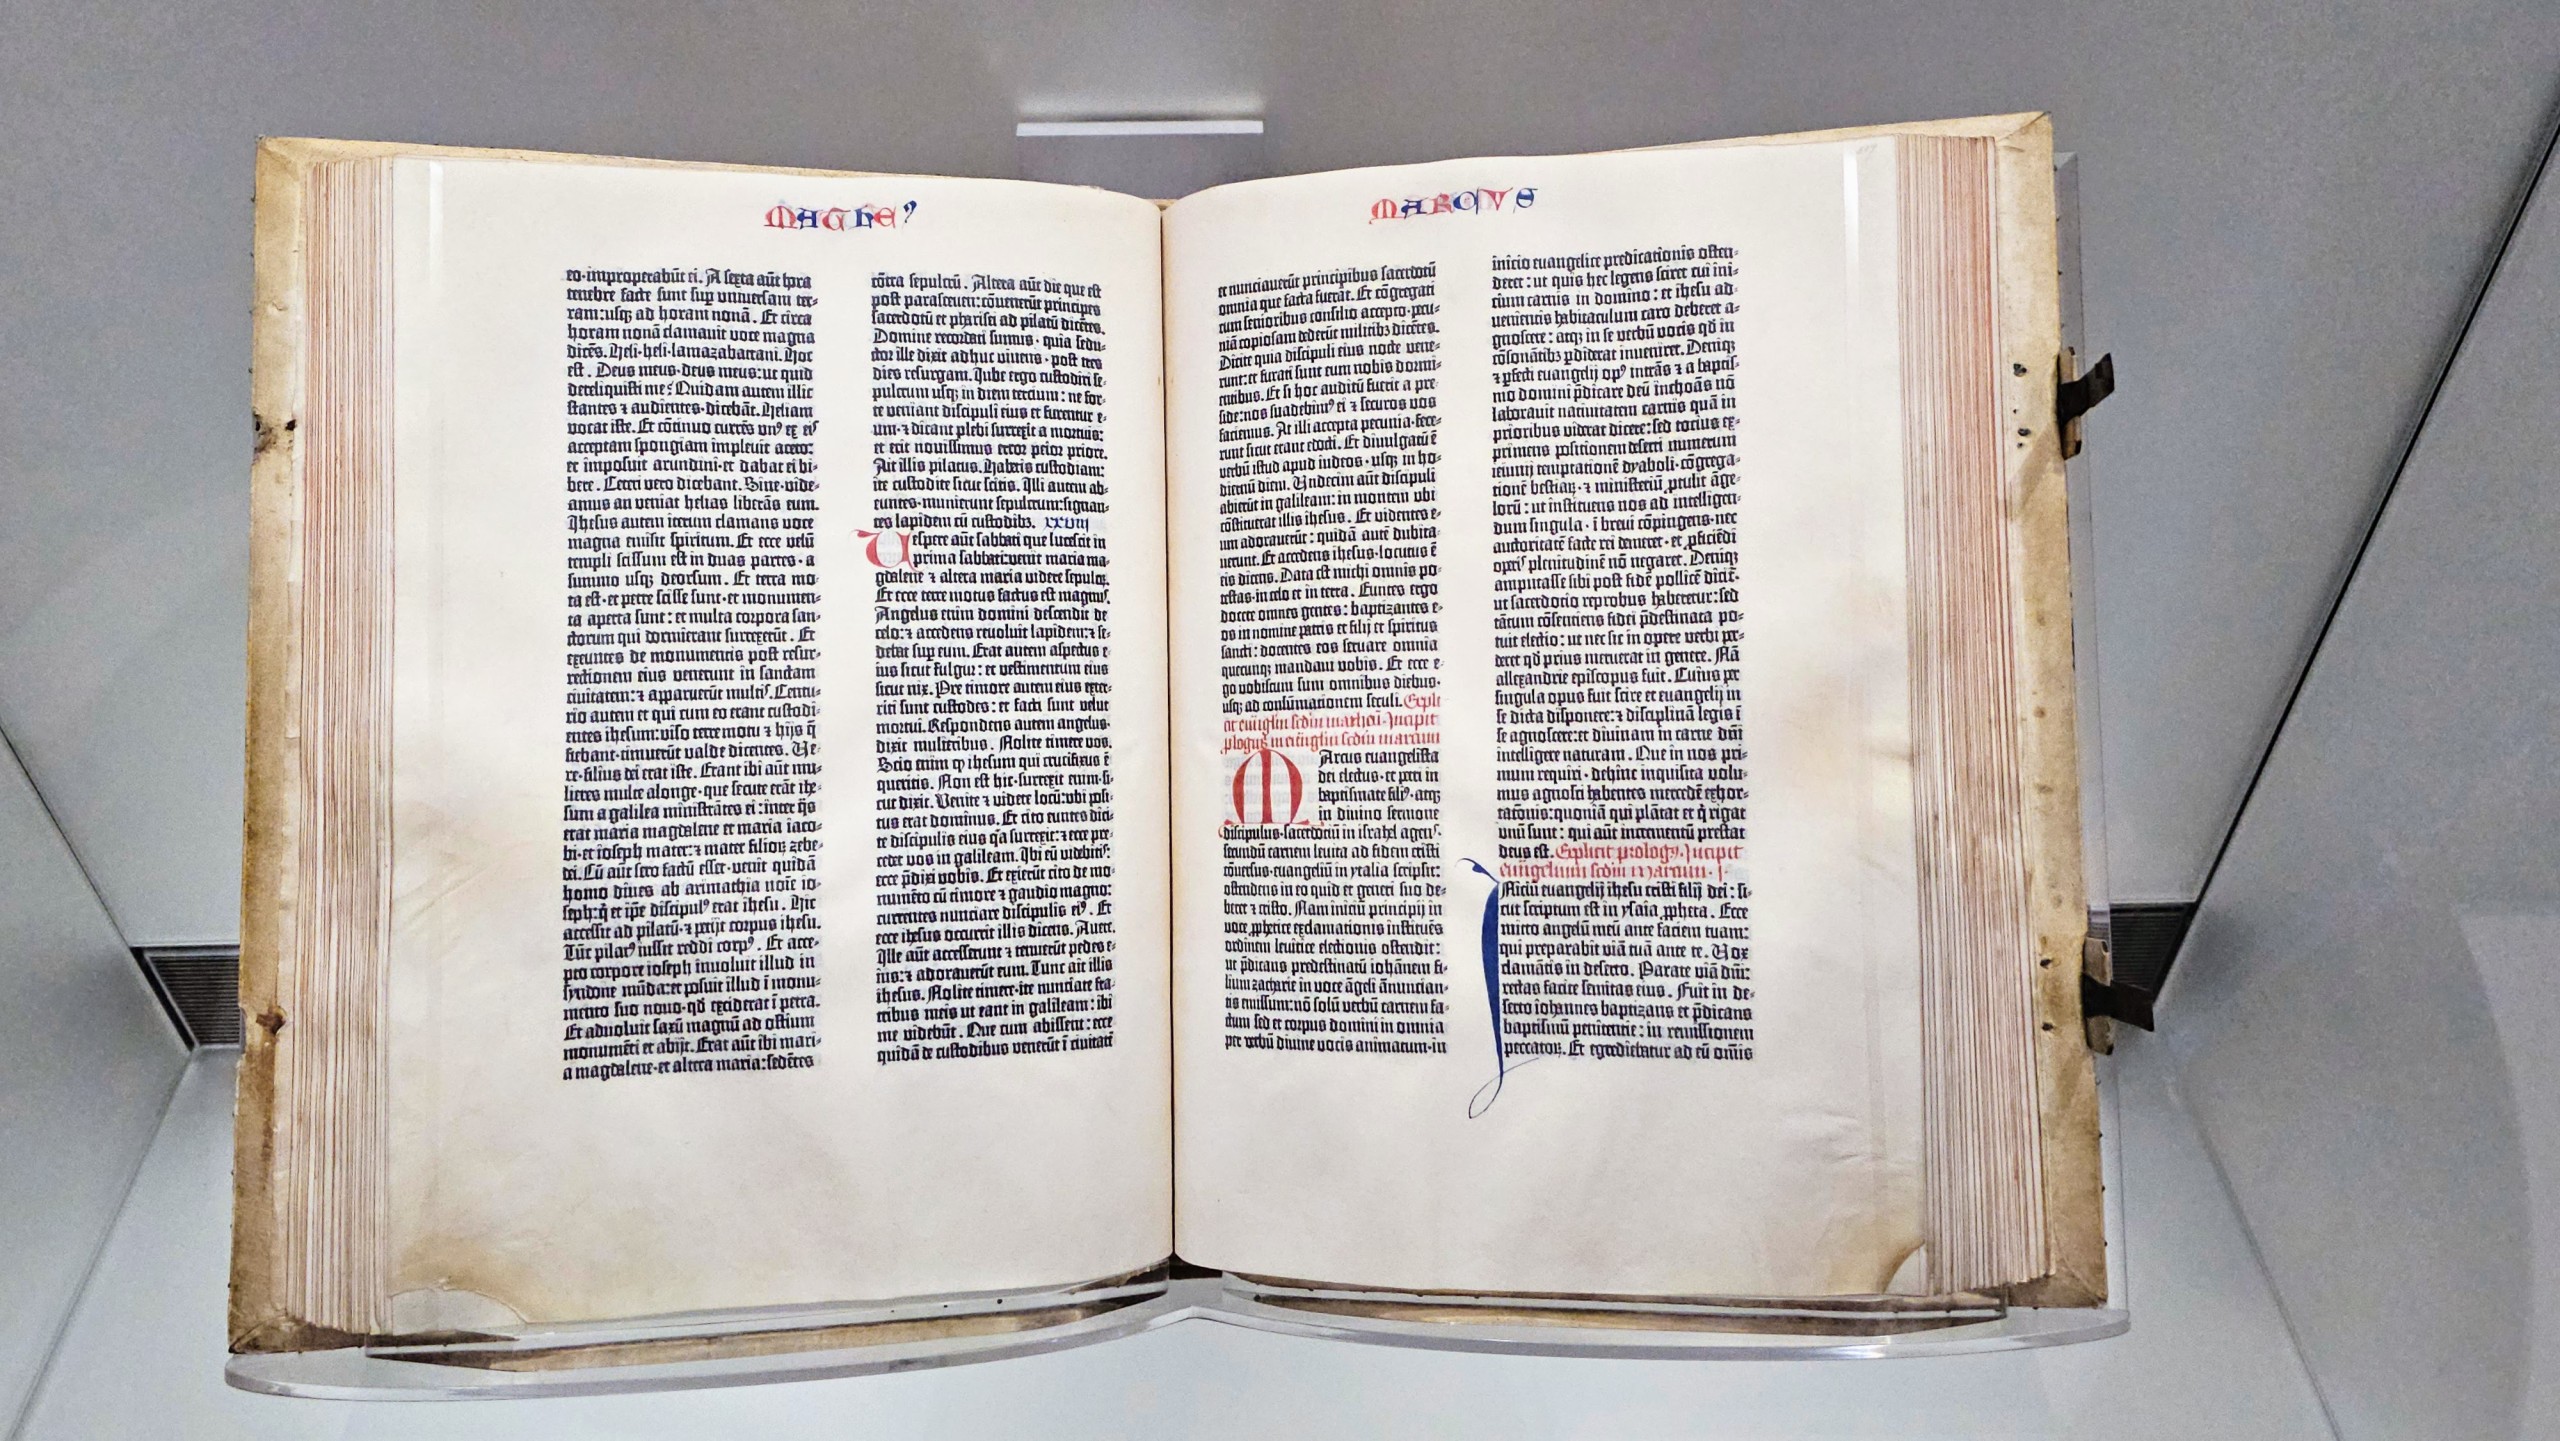 MATHEꝰ
eo·improperabāt ei. A sexta aūt hora
tenebre facte sunt sup vniversam ter-
ram: usqꝫ ad horam nonā. Et circa
horam nonā clamauit voce magna
dicēs. Heli·heli·lamazabattani. Hoc
est. Deus meus·deus meus: ut quid
dereliquisti me? Quidam autem illic
stantes ⁊ audientes·dicebāt. Heliam
vocat iste. Et cōtinuo currēs vnꝰ ex eis
acceptam spongiam impleuit aceto:
et imposuit arundini·et dabat ei bi-
bere. Ceteri vero dicebant. Sine·vide-
amus an veniat helias liberās eum.
Ihesus autem iterum clamans voce
magna emisit spiritum. Et ecce velū
templi scissum est in duas partes·a
summo usqꝫ deorsum. Et terra mo-
ta est·et petre scisse sunt·et monumen-
ta aperta sunt: et multa corpora san-
ctorum qui dormierant surrexerūt. Et
exeuntes de monumentis post resur-
rectionem eius venerunt in sanctam
ciuitatem: ⁊ apparuerūt multis. Centu-
rio autem et qui cum eo erant custodi-
entes ihesum: viso terre motu ⁊ hijs q̄
fiebant·timuerūt valde dicentes. Ve-
re·filius dei erat iste. Erant ibi aūt mu-
lieres multe alonge·que secute erāt ihe-
sum a galilea ministrātes ei: inter q̄s
erat maria magdalene et maria iaco-
bi·et ioseph mater: ⁊ mater filioꝝ zebe-
dei. Cū aūt sero factū esset·venit quidā
homo diues ab arimathia noīe io-
seph: q̇ et ip̄e discipulꝰ erat ihesu. Hic
accessit ad pilatū·⁊ petijt corpus ihesu.
Tūc pilatꝰ iussit reddi corpꝰ. Et acce-
pto corpore ioseph inuoluit illud in
syndone mūda: et posuit illud ī monu-
mento suo nouo·qd̄ exciderat ī petra.
Et aduoluit saxū magnū ad ostium
monumēti et abijt. Erat aūt ibi mari-
a magdalene·et altera maria: sedētes
cōtra sepulcrū. Altera aūt die que est
post parasceuen: cōuenerūt principes
sacerdotū et pharisei ad pilatū dicētes.
Domine recordati sumus·quia sedu-
ctor ille dixit adhuc viuens·post tres
dies resurgam. Iube ergo custodiri se-
pulcrum usqꝫ in diem tercium: ne for-
te veniant discipuli eius et furentur e-
um·⁊ dicant plebi surrexit a mortuis:
et erit nouissimus error peior priore.
Ait illis pilatus. Habetis custodiam:
ite custodite sicut scitis. Illi autem ab-
euntes·munierunt sepulcrum: signan-
tes lapidem cū custodibꝫ. xxviii
Vespere aūt sabbati que lucescit in
prima sabbati: venit maria ma-
gdalene ⁊ altera maria videre sepulcꝝ.
Et ecce terre motus factus est magnus.
Angelus enim domini descendit de
celo: ⁊ accedens reuoluit lapidem: ⁊ se-
debat sup eum. Erat autem aspectus e-
ius sicut fulgur: et vestimentum eius
sicut nix. Pre timore autem eius exter-
riti sunt custodes: et facti sunt velut
mortui. Respondens autem angelus·
dixit mulieribus. Nolite timere vos.
Scio enim ꝙ ihesum qui crucifixus ē
queritis. Non est hic·surrexit enim·si-
cut dixit. Venite ⁊ videte locū: vbi posi-
tus erat dominus. Et cito euntes dici-
te discipulis eius q̄a surrexit: ⁊ ecce pre-
cedet vos in galileam. Ibi eū videbitis:
ecce p̄dixi vobis. Et exierūt cito de mo-
numēto cū timore ⁊ gaudio magno:
currentes nunciare discipulis eiꝰ. Et
ecce ihesus occurrit illis dicens. Auete.
Ille aūt accesserunt ⁊ tenuerūt pedes e-
ius: ⁊ adorauerūt eum. Tunc ait illis
ihesus. Nolite timere·ite nunciate fra-
tribus meis ut eant in galileam: ibi
me videbūt. Que cum abissent: ecce
quidā de custodibus venerūt ī ciuitatē
MARCVS
et nunciauerūt principibus sacerdotū
omnia que facta fuerāt. Et cōgregati
cum senioribus consilio accepto·pecu-
niā copiosam dederūt militibꝫ dicētes.
Dicite quia discipuli eius nocte vene-
runt: et furati sunt eum nobis dormi-
entibus. Et si hoc auditū fuerit a pre-
side: nos suadebimꝰ ei ⁊ securos vos
faciemus. At illi accepta pecunia·fece-
runt sicut erant edocti. Et diuulgatū ē
verbū istud apud iudeos·usqꝫ in ho-
diernū diem. Vndecim aūt discipuli
abierūt in galileam: in montem vbi
cōstituerat illis ihesus. Et videntes e-
um adorauerūt: quidā autē dubita-
uerunt. Et accedens ihesus·locutus ē
eis dicens. Data est michi omnis po-
testas·in celo et in terra. Euntes ergo
docete omnes gentes: baptizantes e-
os in nomine patris et filij et spiritus
sancti: docentes eos seruare omnia
quecunqꝫ mandaui vobis. Et ecce e-
go vobiscum sum omnibus diebus·
usqꝫ ad consūmationem seculi. Expli-
cit euūgliū scdm matheū. Incipit
plogus in euūgliū scdm marcum
Marcus euangelista
dei electus·et petri in
baptismate filiꝰ·atqꝫ
in diuino sermone
discipulus·sacerdotiū in israhel agens·
secundū carnem leuita ad fidem cristi
cōuersus·euangeliū in ytalia scripsit:
ostendens in eo quid et generi suo de-
beret ⁊ cristo. Nam iniciū principij in
voce ꝓphetice exclamationis instituēs
ordinem leuitice electionis ostendit:
ut p̄dicans predestinatū iohānem fi-
lium zacharie in voce āgeli ānuncian-
tis emissum: nō solū verbū carnem fa-
ctum sed et corpus domini in omnia
per verbū diuine vocis animatum·in
inicio euangelice predicationis osten-
deret: ut quis hec legens sciret cui ini-
cium carnis in domino: et ihesu ad-
uenientis habitaculum caro deberet a-
gnoscere: atqꝫ in se verbū vocis qd̄ in
cōsonātibꝫ ꝑdiderat inueniret. Deniqꝫ
⁊ ꝑfecti euangelij opꝰ intrās ⁊ a baptis-
mo domini p̄dicare deū inchoās nō
laborauit natiuitatem carnis quā in
prioribus viderat dicere: sed totius ex-
primens positionem deserti numerum
ieiunij temptationē dyaboli·cōgrega-
tionē bestiaꝝ·⁊ ministeriū ꝓtulit āge-
lorū: ut instituens nos ad intelligen-
dum singula·ī breui cōpingens·nec
auctoritatē facte rei demeret·et ꝓficiēdi
operis plenitudinē nō negaret. Deniqꝫ
amputasse sibi post fidē pollicē dicit̄·
ut sacerdotio reprobus haberetur: sed
tātum cōsentiens fidei p̄destinata po-
tuit electio: ut nec sic in opere verbi per-
deret qd̄ prius meruerat in genere. Nā
allexandrie episcopus fuit. Cuius per
singula opus fuit scire et euangelij in
se dicta disponere: ⁊ disciplinā legis ī
se agnoscere: et diuinam in carne dn̄i
intelligere naturam. Que in nos pri-
mum requiri·dehinc inquisita volu-
mus agnosci habentes mercedē exhor-
tationis: quoniā qui plātat et q̇ rigat
vnū sunt: qui aūt incrementū prestat
deus est. Explicit prologꝰ. Incipit
euūgelium scdm Marcum. I.
Iniciū euangelij ihesu cristi filij dei: si-
cut scriptum est in ysaia ꝓpheta. Ecce
mitto angelū meū ante faciem tuam:
qui preparabit viā tuā ante te. Vox
clamātis in deserto. Parate viā dn̄i:
rectas facite semitas eius. Fuit in de-
serto iohannes baptizans et p̄dicans
baptismū penitentie: in remissionem
peccatoꝝ. Et egrediebatur ad eū omīs